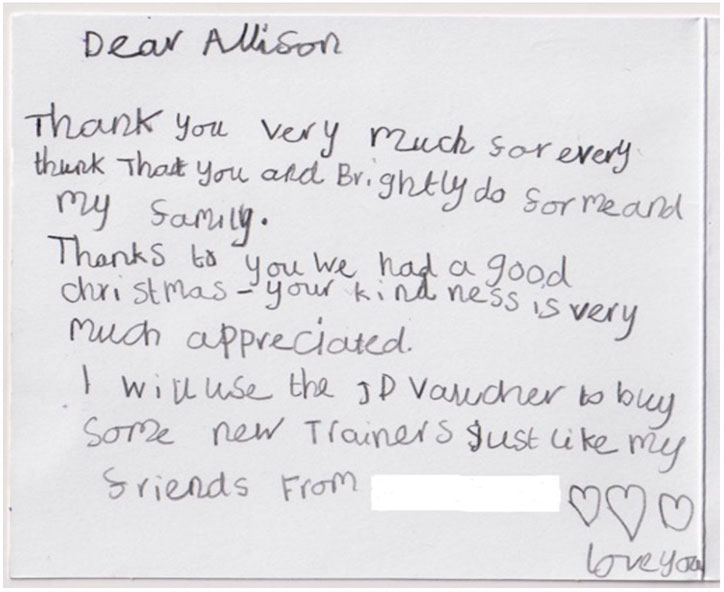 Dear Allison
Thank you very much for every
thunk That you and Brightly do for me and
my family.
Thanks to you We had a good
christmas - your kindness is very
much appreciated.
I will use the JD Vaucher to buy
some new Trainers Just like my
friends From
love you